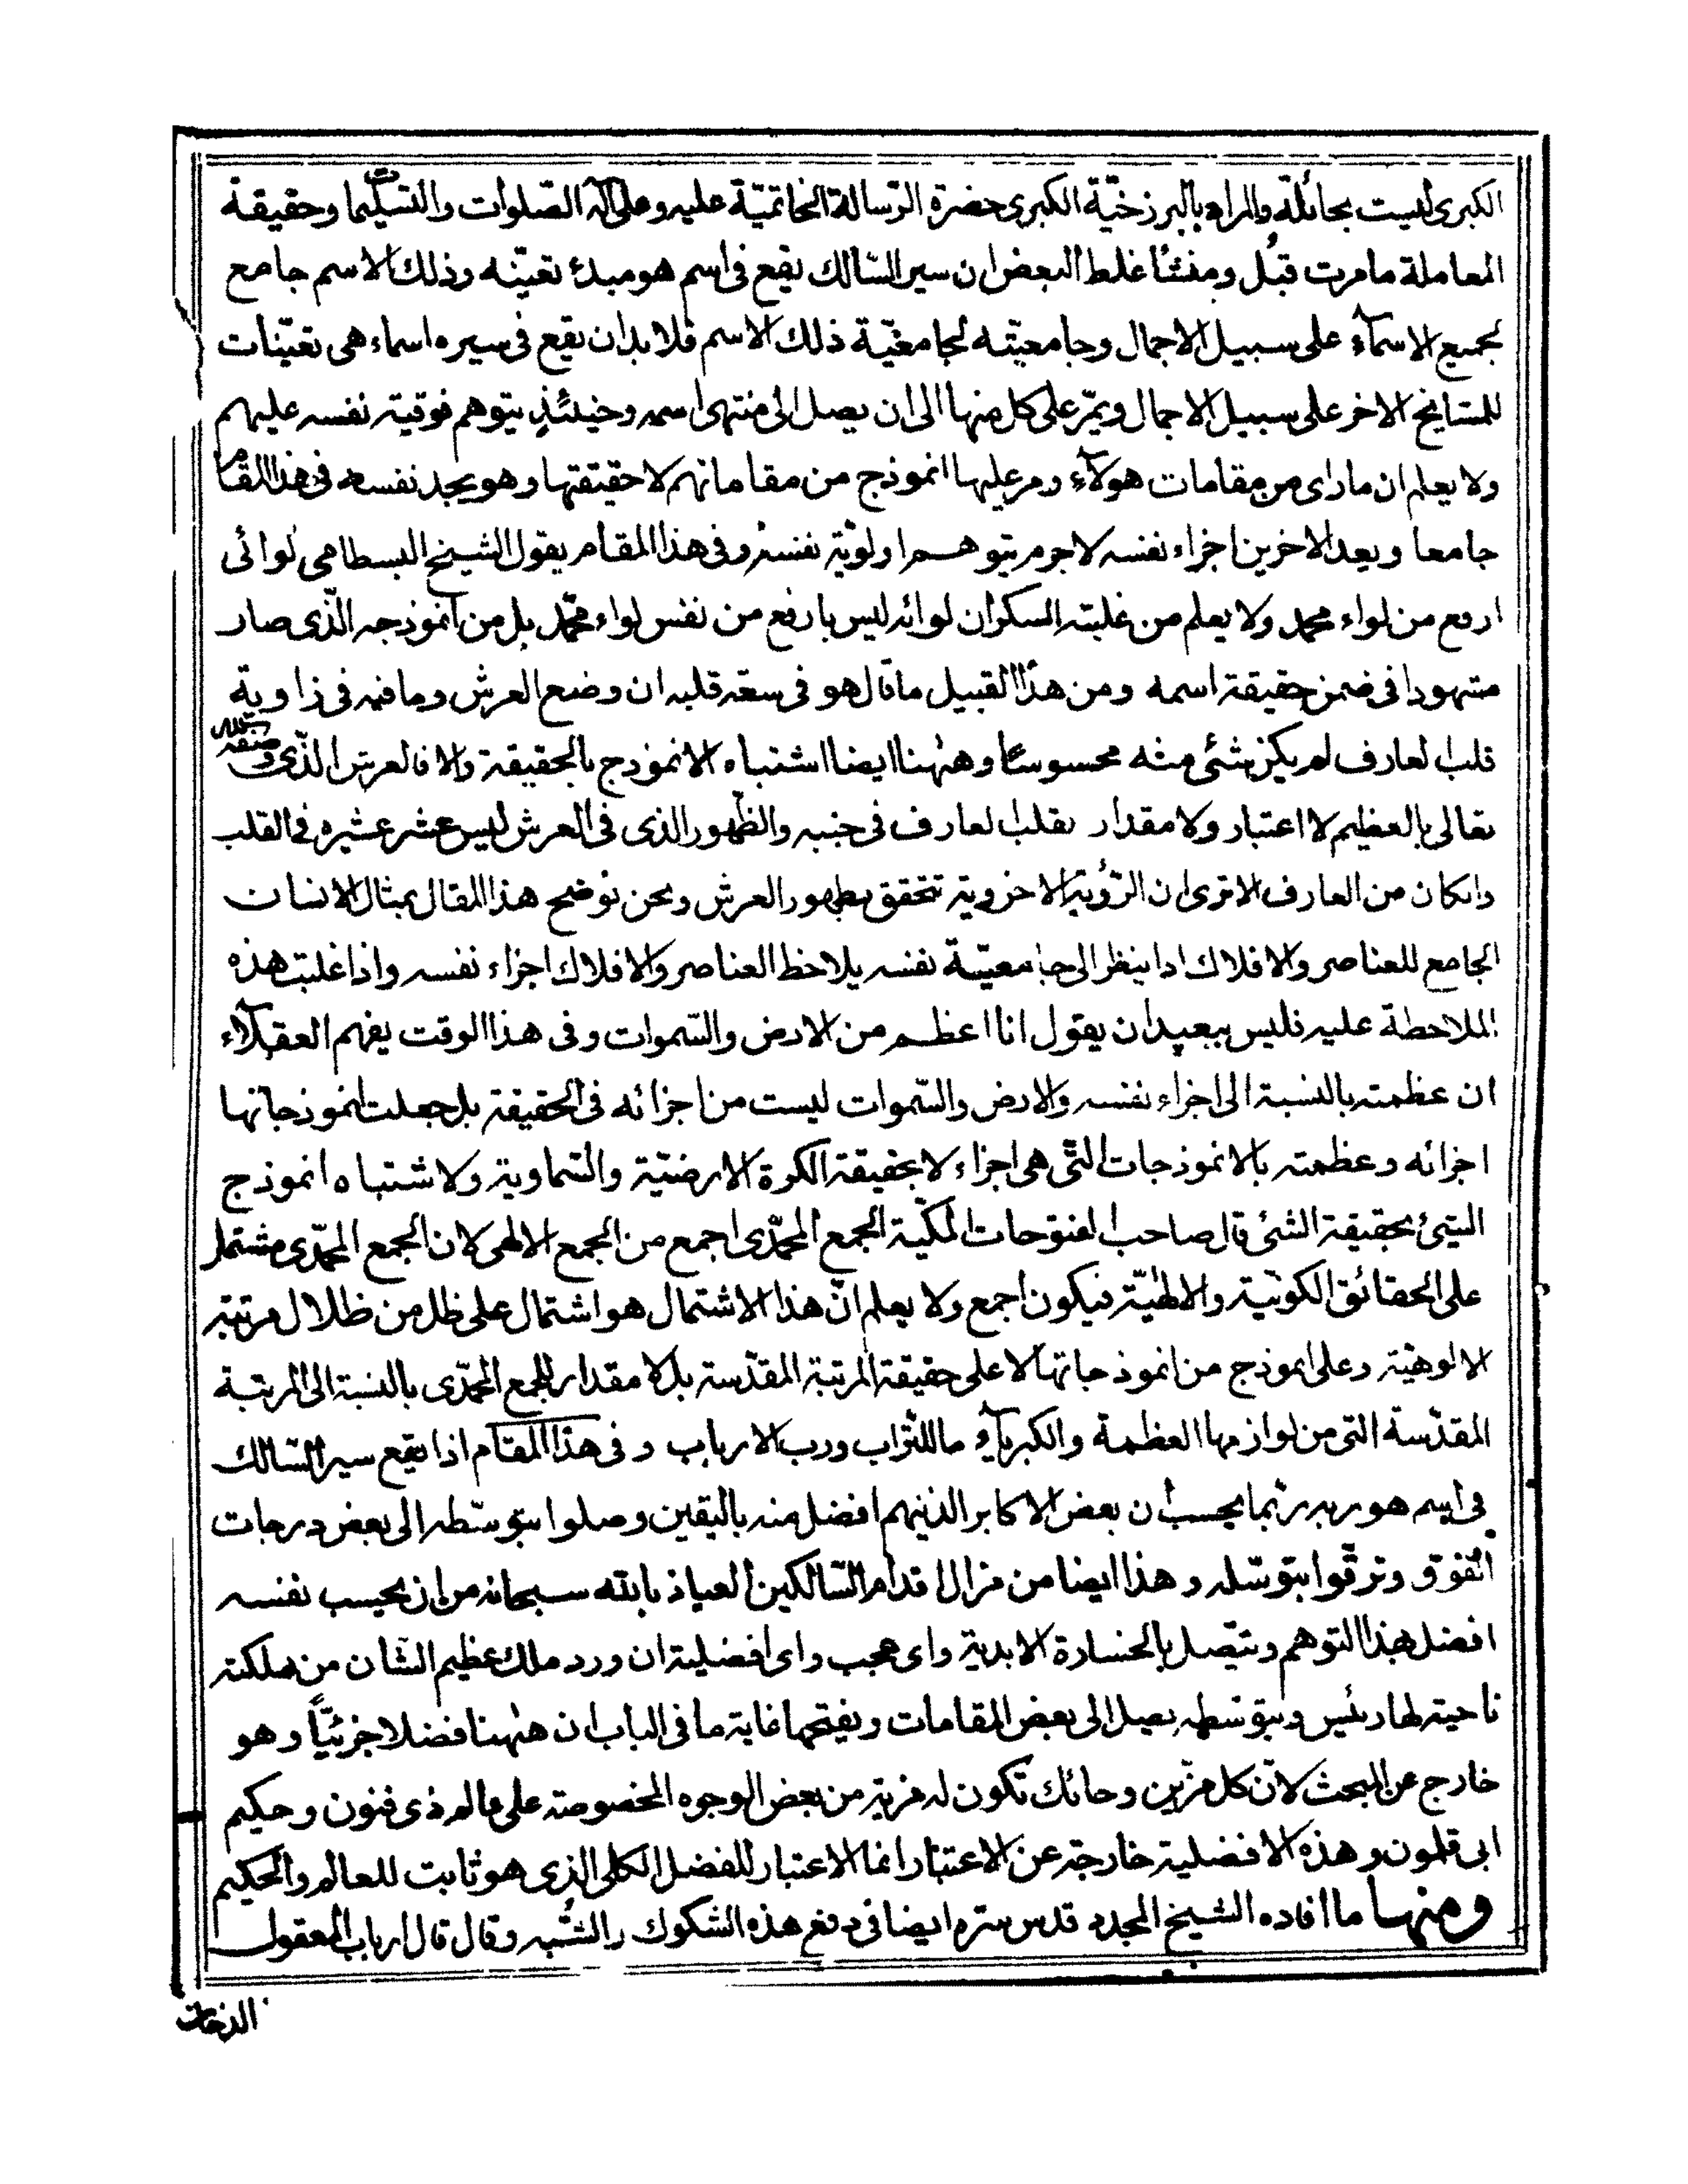 الكبرى ليست بحائلة والمراد بالبرزخيّة الكبرى حضرة الرّسالة الخاتميّة عليه وعلى آله الصّلوات والتسليمات وحقيقة
المعاملة ما مرت قبل ومنشأ غلط البعض ان سير السّالك يقع فى اسم هو مبدئ تعيّنه وذلك الاسم جامع
لجميع الاسمآء على سبيل الاجمال وجامعيّته لجامعيّة ذلك الاسم فلابد ان يقع فى سيره اسماء هى تعيّنات
للمشايخ الاخر على سبيل الاجمال ويمّر على كل منها الى ان يصل الى منتهى اسمه وحينئذٍ يتوهم فوقية نفسه عليهم
ولا يعلم ان ما راى من مقامات هولآء ومر عليها انموذج من مقاماتهم لا حقيقتها وهو يجد نفسه فى هذا المقام
جامعا ويعد الاخرين اجزاء نفسه لاجرم يتوهم اولويّة نفسه وفى هذا المقام يقول الشيخ البسطامى لوائى
ارفع من لواء محمد ولا يعلم من غلبته السكران لوائه ليس بارفع من نفس لواء محمّد بل من انموذجه الّذى صار
مشهودا فى ضمن حقيقة اسمه ومن هذا القبيل ما قال هو فى سعة قلبه ان وضع العرش وما فيه فى زاوية
قلب العارف لم يكن شئى منه محسوسا وههنا ايضا اشتباه الانموذج بالحقيقة والا فالعرش الّذى وصفه الله
تعالى بالعظيم لا اعتبار ولا مقدار بقلب العارف فى جنبه والظّهور الذى فى العرش ليس عشر عشيره فى القلب
وان كان من العارف الا ترى ان الرّؤية الاخروية تتحقق بظهور العرش ونحن نوضح هذا المقال بمثال الانسان
الجامع للعناصر والافلاك اذا ينظر الى جامعيّة نفسه يلاحظ العناصر والافلاك اجزاء نفسه واذا غلبت هذه
الملاحظة عليه فليس ببعيد ان يقول انا اعظم من الارض والسّموات وفى هذا الوقت يفهم العقلآء
ان عظمته بالنسبة الى اجزاء نفسه والارض والسّموات ليست من اجزائه فى الحقيقة بل جعلت انموذجاتها
اجزائه وعظمته بالانموذجات الّتى هى اجزاء لا بحقيقة الكرة الارضيّة والسّماوية ولاشتباه انموذج
الشئ بحقيقة الشئى قال صاحب الفتوحات المكّية الجمع المحمّدى اجمع من الجمع الالهى لان الجمع المحمّدى مشتمل
على الحقائق الكونيّة والالهيّة فيكون اجمع ولا يعلم انّ هذا الاشتمال هو اشتمال على ظل من ظلال مرتبة
الالوهيّة وعلى انموذج من انموذجاتها لا على حقيقة المرتبة المقدّسة بل لا مقدار للجمع المحمّدى بالنسبة الى المرتبة
المقدّسة التى من لوازمها العظمة والكبريآء ما للتراب ورب الارباب وفى هذا المقام اذا يقع سير السّالك
فى اسم هو ربه ربّما يحسب ان بعض الاكابر الذينهم افضل منه باليقين وصلوا بتوسّطه الى بعض درجات
الفوق وترقّوا بتوسّله وهذا ايضا من مزال اقدام السّالكين العياذ بالله سبحانه من ان يحسب نفسه
افضل بهذا التوهم ويتصل بالخسارة الابدية واى عجب واى افضلية ان ورد ملك عظيم الشان من مملكته
ناحية لها رئيس وبتوسّطه يصل الى بعض المقامات ويفتحها غاية ما فى الباب ان ههنا فضلا جزئيّاً وهو
خارج عن المبحث لانّ كل مزّين وحائك تكون له مزية من بعض الوجوه المخصوصة على عالم ذى فنون وحكيم
ابى قلمون وهذه الافضلية خارجة عن الاعتبار انما الاعتبار للفضل الكلى الذى هو ثابت للعالم والحكيم
ومنها ما افاده الشيخ المجدد قدس سره ايضا فى دفع هذه الشكوك والشّبه وقال قال ارباب المعقول